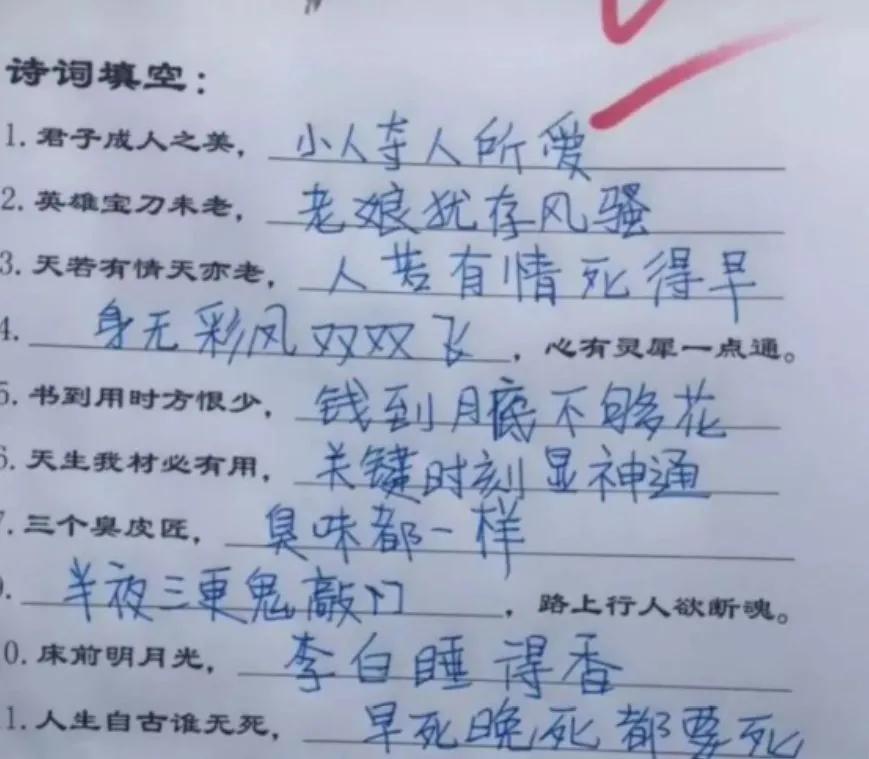 诗词填空：
1.君子成人之美，小人夺人所爱
2.英雄宝刀未老，老娘犹存风骚
3.天若有情天亦老，人若有情死得早
4.身无彩凤双双飞，心有灵犀一点通。
5.书到用时方恨少，钱到月底不够花
6.天生我材必有用，关键时刻显神通
7.三个臭皮匠，臭味都一样
9.半夜三更鬼敲门，路上行人欲断魂。
0.床前明月光，李白睡得香
1.人生自古谁无死，早死晚死都要死